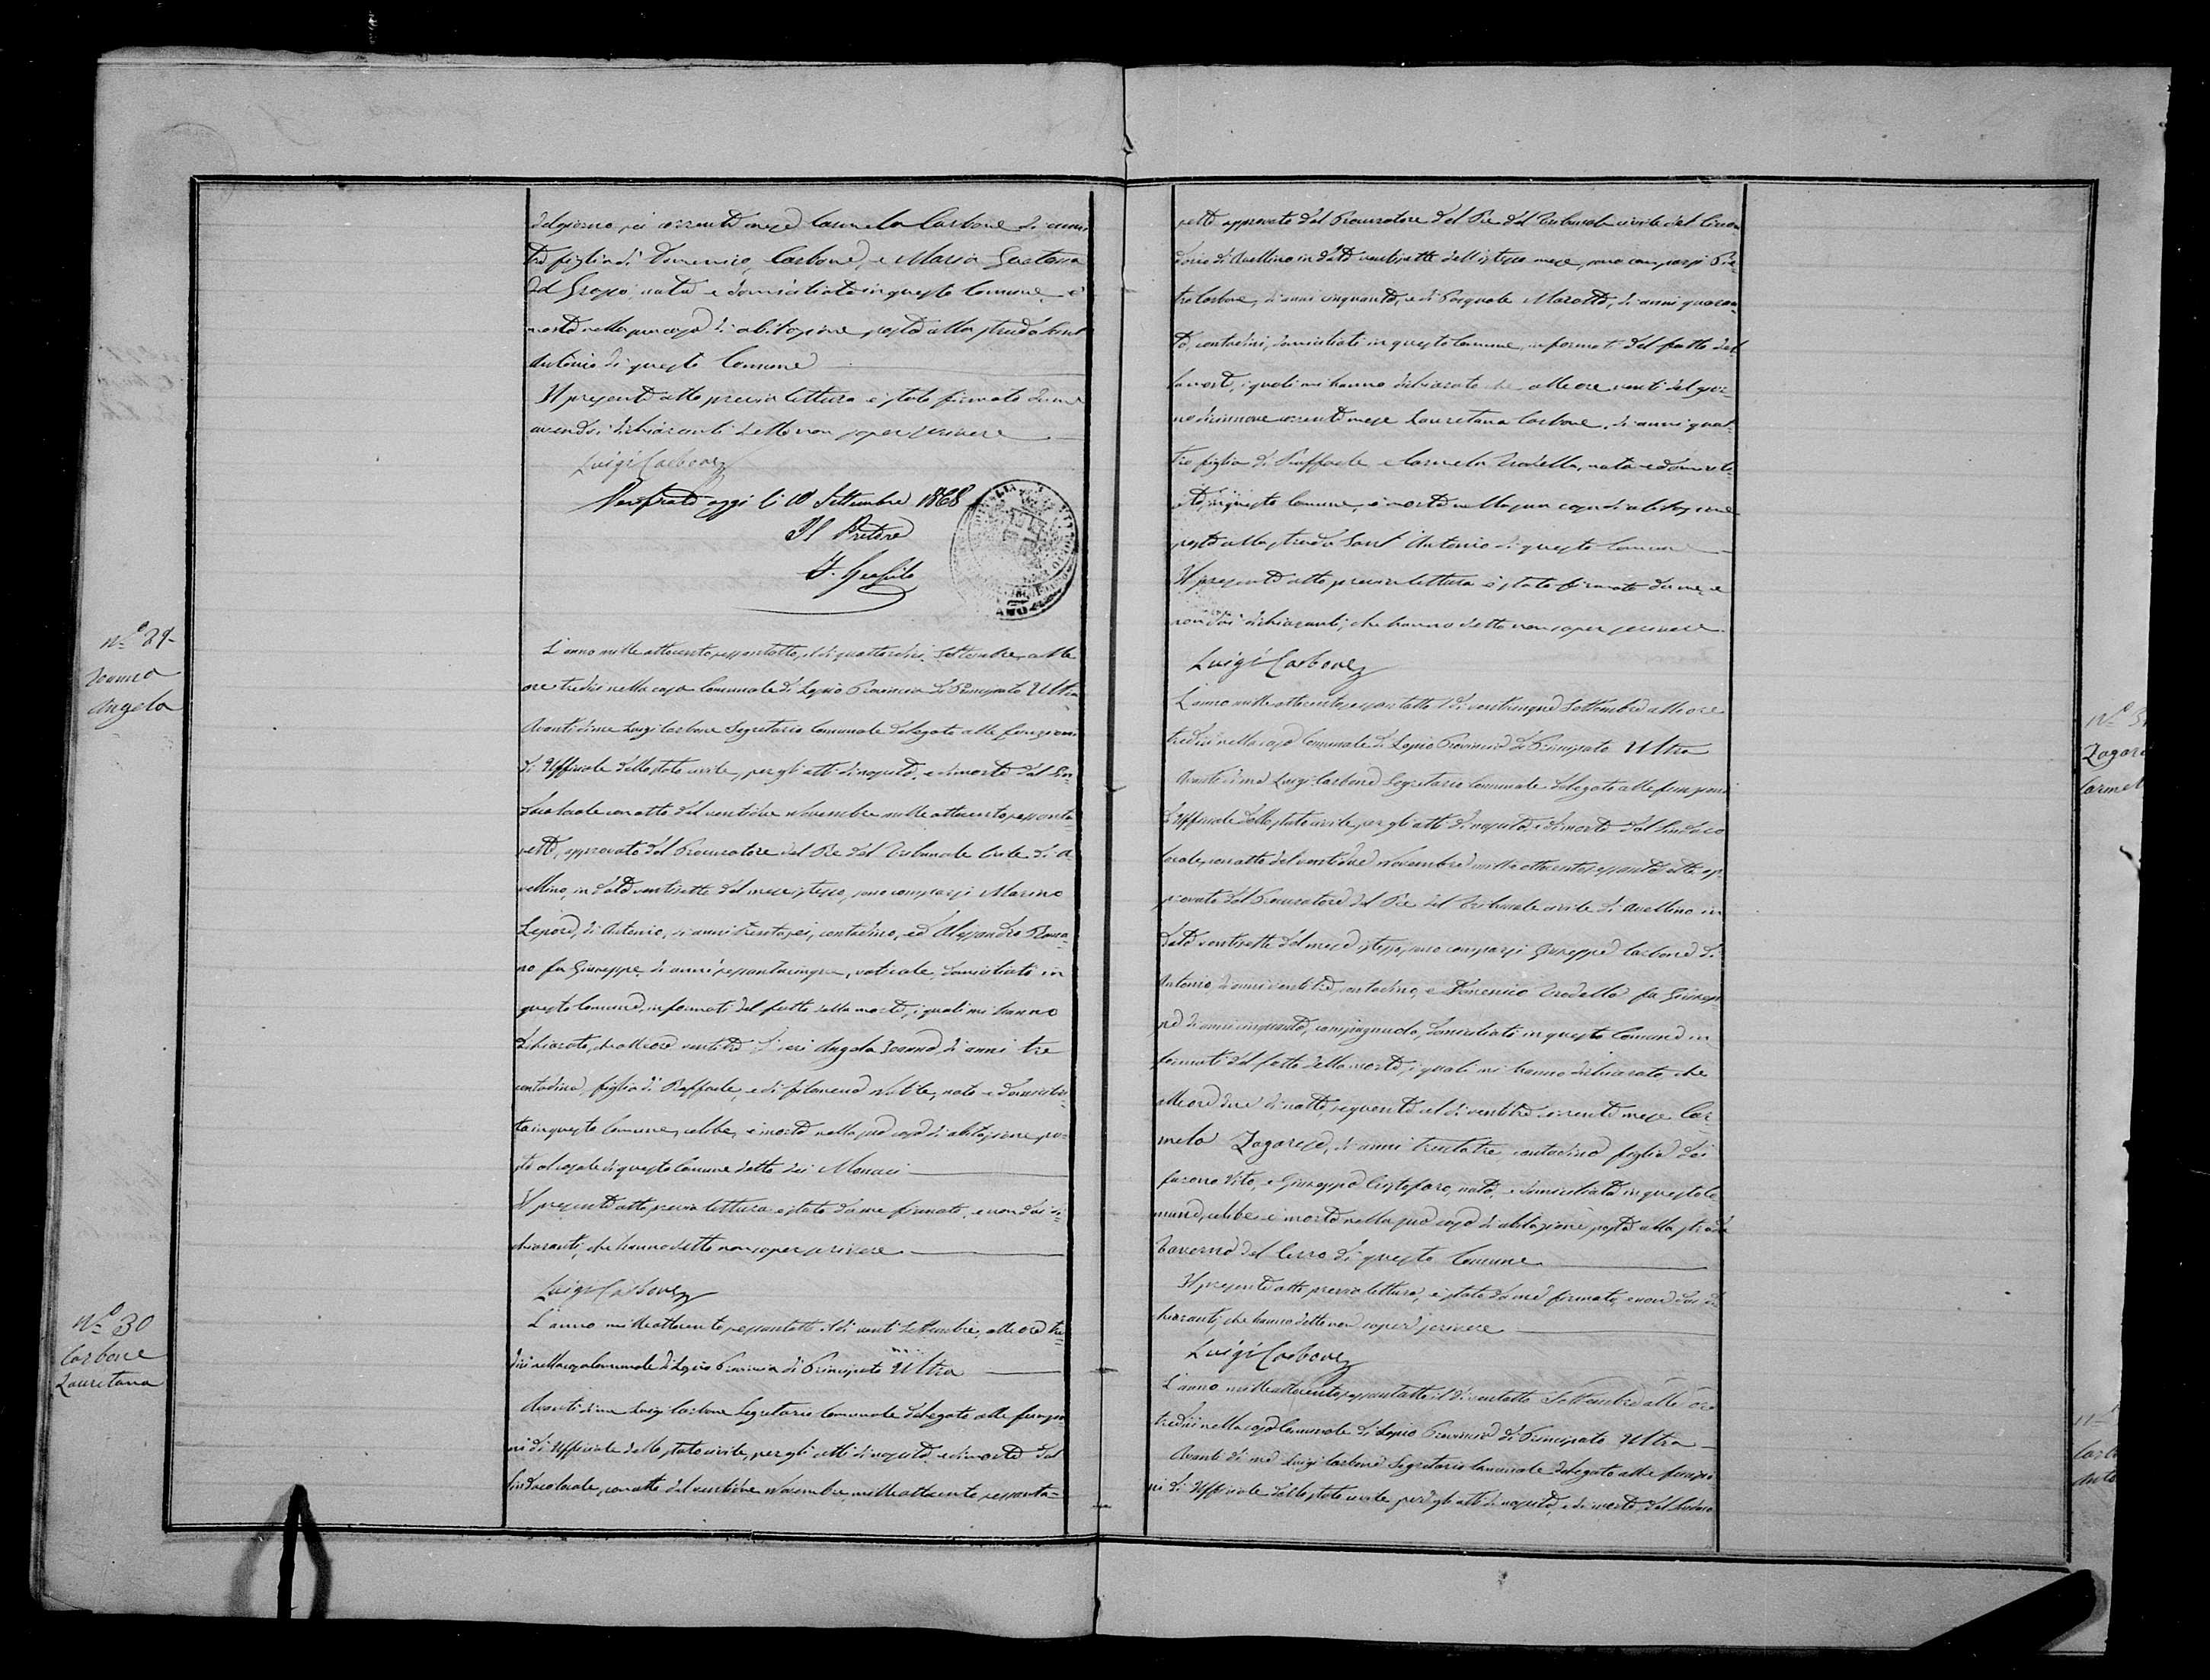 del giorno sei corrente mese Carmela Carbone di anni
tre figlia di Domenico Carbone, e Maria Gaetana
del Grosso, nata e domiciliata in questo Comune, è
morta nella sua casa di abitazione, posta alla strada Sant
Antonio di questo Comune
Il presente atto previa lettura è stato firmato da me
avendo i dichiaranti detto non saper scrivere
Luigi Carbone
Verificato oggi li 10 Settembre 1868
Il Pretore
Nº 29
Ioanna
Angela
L'anno mille ottocento sessantotto, il dì quattordici Settembre, alle
ore tredici nella casa Comunale di Lapio Provincia di Principato Ultra
Avanti di me Luigi Carbone Segretario Comunale delegato alle funzioni
di Uffiziale dello stato civile, per gli atti di nascita, e di morte dal Sin-
daco locale con atto del ventidue Novembre mille ottocento sessanta-
sette, approvato dal Procuratore del Re del Tribunale Civile di A-
vellino, in data ventisette del mese istesso, sono comparsi Marino
Lepore, di Antonio, di anni trentasei, contadino, ed Alessandro Roma-
no fu Giuseppe di anni sessantacinque, vaticale, domiciliati in
questo Comune, informati del fatto della morte, i quali mi hanno
dichiarato, che alle ore ventitre di ieri Angela Ioanna, di anni tre
contadina, figlia di Raffaele, e di Filomena Notile, nata e domicilia-
ta in questo Comune, celibe, è morta nella sua casa di abitazione po-
sta al casale di questo Comune detto dei Monaci
Il presente atto previa lettura è stato da me firmato, e non dai di-
chiaranti, che hanno detto non saper scrivere
Luigi Carbone
Nº 30
Carbone
Lauretana
L'anno mille ottocento sessantotto il dì venti Settembre, alle ore tre-
dici nella casa Comunale di Lapio Provincia di Principato Ultra
Avanti di me Luigi Carbone Segretario Comunale delegato alle funzio-
ni di Uffiziale dello stato civile, per gli atti di nascita, e di morte dal
Sindaco locale, con atto del ventidue Novembre mille ottocento sessanta-
sette approvato dal Procuratore del Re del Tribunale civile del Circon
dario di Avellino in data ventisette dell'istesso mese, sono comparsi Pie-
tro Carbone, di anni cinquanta, e di Pasquale Marotta, di anni quaran-
ta, contadini, domiciliati in questo Comune, informati del fatto del
la morte, i quali mi hanno dichiarato che alle ore venti del gior-
no diciannove corrente mese Lauretana Carbone, di anni quat-
tro figlia di Raffaele e Carmela Trodella, nata e domicili-
ata in questo Comune, è morta nella sua casa di abitazione
posta alla strada Sant'Antonio di questo Comune
Il presente atto previa lettura è stato firmato da me, e
non dai dichiaranti, che hanno detto non saper scrivere.
Luigi Carbone
L'anno mille ottocento sessantotto il dì venticinque Settembre alle ore
tredici nella casa Comunale di Lapio Provincia di Principato Ultra
Avanti di me Luigi Carbone Segretario Comunale delegato alle funzioni
d'Uffiziale dello stato civile, per gli atti di nascita, e di morte dal Sindaco
locale, con atto del ventidue Novembre mille ottocento sessantasette ap-
provato dal Procuratore del Re del Tribunale civile di Avellino in
data ventisette del mese istesso, sono comparsi Giuseppe Carbone di
Antonio, di anni ventitre, contadino, e Domenico Trodella fu Giusep-
pe di anni cinquanta, domiciliati in questo Comune in
formati del fatto della morte, i quali mi hanno dichiarato, che
alle ore due di notte seguente al dì ventitre corrente mese Car-
mela Zagarese, di anni trentatre contadina figlia dei
furono Vito, e Giuseppa Cristofaro, nata, e domiciliata in questo Co
mune, celibe è morta nella sua casa di abitazione posta alla strada
Taverna del Cerro di questo Comune
Il presente atto previa lettura, è stato da me firmato, e non dai di
chiaranti, che hanno detto non saper scrivere
Luigi Carbone
L'anno mille ottocento sessantotto il dì ventotto Settembre alle ore
tredici nella casa Comunale di Lapio Provincia di Principato Ultra
Avanti di me Luigi Carbone Segretario Comunale delegato alle funzio-
ni di Uffiziale dello stato civile per gli atti di nascita, e di morte, dal Sindaco
Nº 3
Zagare
Carmel
Carb
Anto